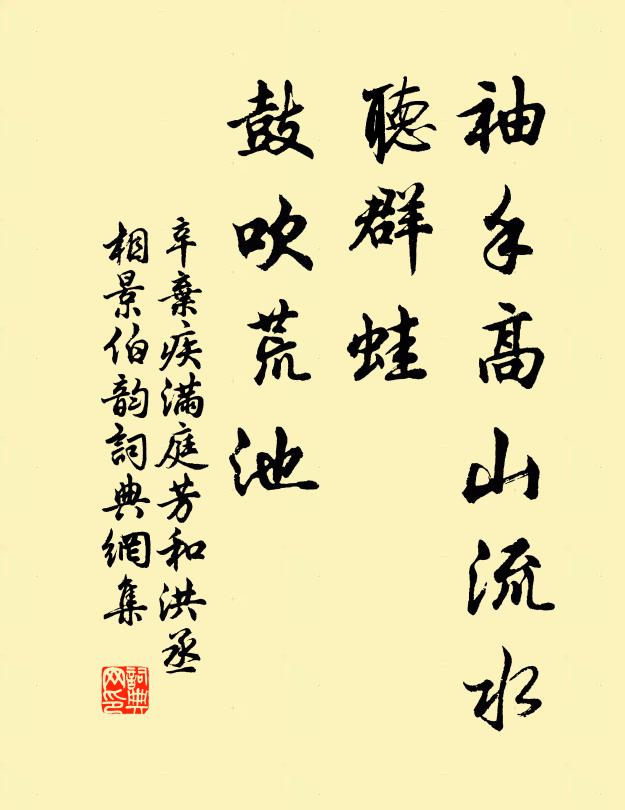 袖手高山流水
聽群蛙
鼓吹荒池
辛棄疾满庭芳和洪丞
相景伯韵詞典網集
詞典网印